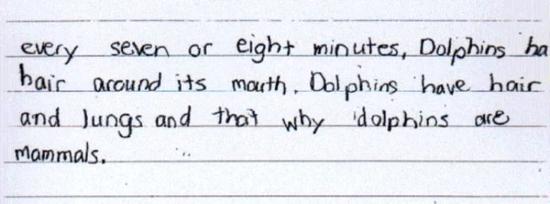 every seven or eight minutes, Dolphins ha
hair around its mouth. Dolphins have hair
and lungs and that why dolphins are
mammals.